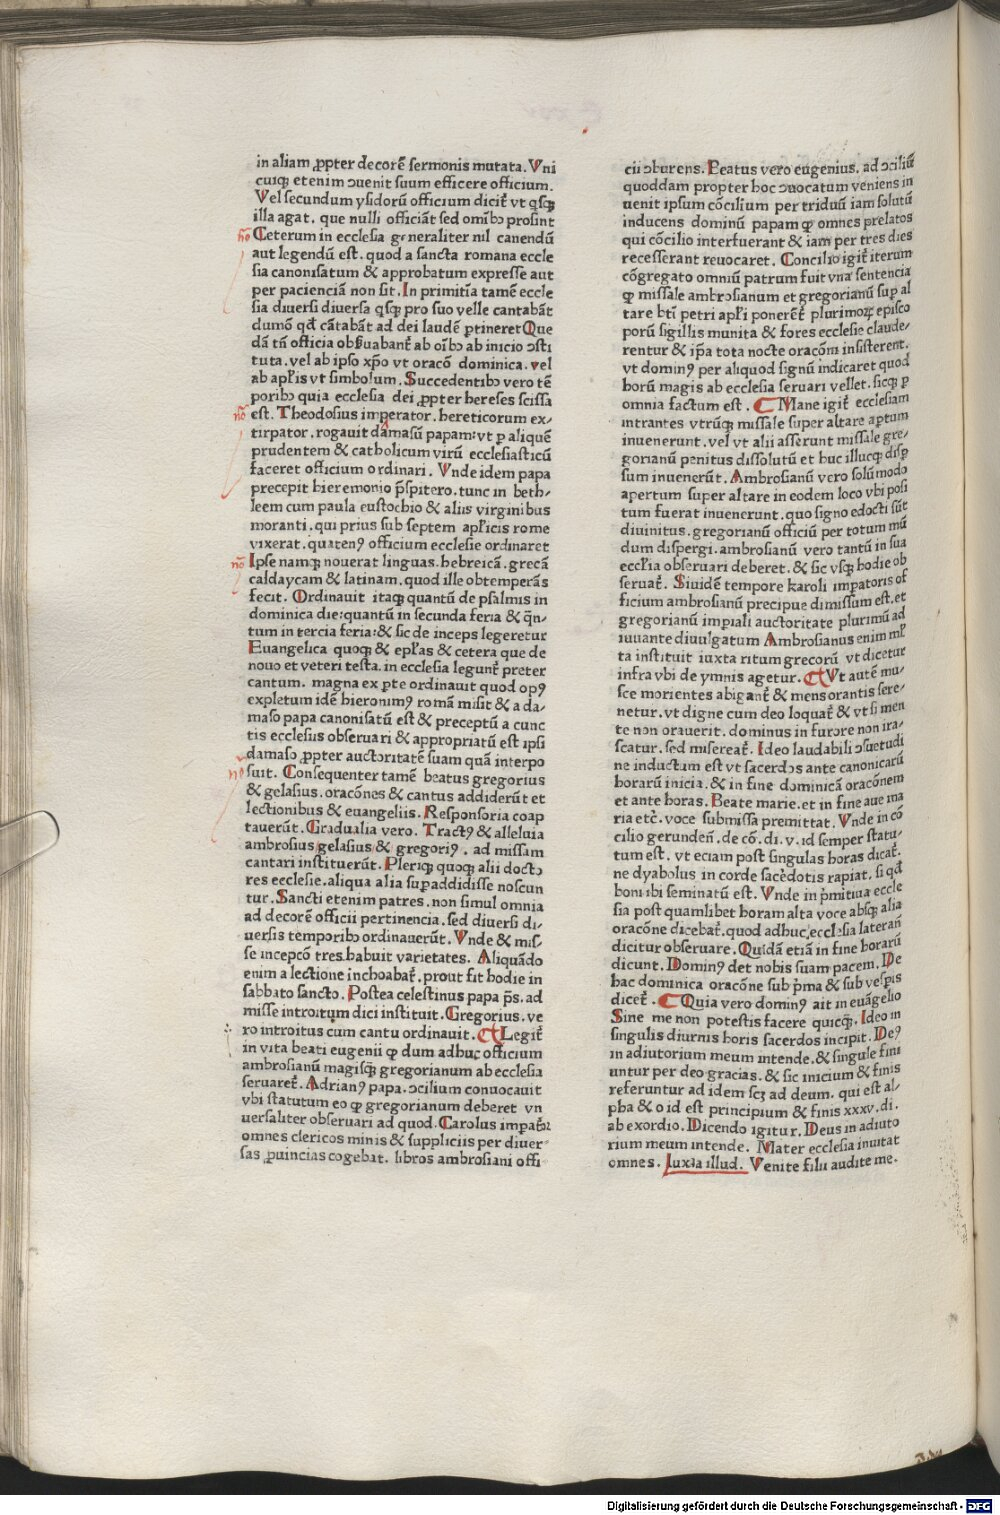 in aliam ꝓpter decorē sermonis mutata. Vni
cuiqꝫ etenim ↄuenit suum efficere officium.
Vel secundum ysidorū officium dicit᷑ vt qͥsqꝫ
illa agat, que nulli officiāt sed omībꝫ prosint
Ceterum in ecclesia generaliter nil canendū
aut legendū est. quod a sancta romana eccle
sia canonisatum & approbatum expresse aut
per pacienciā non sit. In primitīa tamē eccle
sia diuersi diuersa qͥsqꝫ pro suo velle cantabāt
dumō qd̄ cātabāt ad dei laudē ꝑtineret Que
dā tn̄ officia obẜuabant᷑ ab oībꝫ ab inicio ↄsti
tuta. vel ab ipso xp̄o vt oracō dominica. vel
ab apl̓is vt simbolum. Succedentibꝫ vero tē
poribꝫ quia ecclesia dei ꝓpter hereses scissa
est. Theodosius imperator. hereticorum ex-
tirpator. rogauit damasū papam: vt ꝑ aliquē
prudentem & catholicum virū ecclesiasticū
faceret officium ordinari. Vnde idem papa
precepit hieremonio p̄spitero. tunc in beth-
leem cum paula eustochio & aliis virginibus
moranti. qui prius sub septem apl̓icis rome
vixerat. quatenꝰ officium ecclesie ordinaret
Ipse namqꝫ nouerat linguas. hebreicā. grecā
caldaycam & latinam. quod ille obtemperās
fecit. Ordinauit itaqꝫ quantū de psalmis in
dominica die: quantū in secunda feria & q̄n-
tum in tercia feria: & sic de inceps legeretur
Euangelica quoqꝫ & epl̓as & cetera que de
nouo et veteri testa. in ecclesia legunt᷑ preter
cantum. magna ex ꝑte ordinauit quod opꝰ
expletum idē hieronimꝰ romā misit & a da-
maso papa canonisatū est & preceptū a cunc
tis ecclesiis obseruari & appropriatū est ipsi
damaso ꝓpter auctoritatē suam quā interpo
suit. Consequenter tamē beatus gregorius
& gelasius. oracōnes & cantus addiderūt et
lectionibus & euangeliis. Responsoria coap
tauerūt. Gradualia vero. Tractꝰ & alleluia
ambrosius gelasius & gregoriꝰ. ad missam
cantari instituerūt. Pleriqꝫ quoqꝫ alii docto
res ecclesie. aliqua alia suꝑaddidisse noscun
tur. Sancti etenim patres. non simul omnia
ad decorē officii pertinencia. sed diuersi di-
uersis temporibꝫ ordinauerūt. Vnde & mis-
se incepcō tres habuit varietates. Aliquādo
enim a lectione inchoabat᷑. prout fit hodie in
sabbato sancto. Postea celestinus papa p̄s. ad
misse introitum dici instituit. Gregorius. ve
ro introitus cum cantu ordinauit. Legit᷑
in vita beati eugenii ꝙ dum adhuc officium
ambrosianū magisqꝫ gregorianum ab ecclesia
seruaret᷑. Adrianꝰ papa. ↄcilium conuocauit
vbi statutum eo ꝙ gregorianum deberet vn
uersaliter obseruari ad quod. Carolus impator
omnes clericos minis & suppliciis per diuer-
sas ꝓuincias cogebat. libros ambrosiani offi
cii ↄburens. Beatus vero eugenius. ad ↄciliū
quoddam propter hoc ↄuocatum veniens in
uenit ipsum cōcilium per triduū iam solutū
inducens dominū papam ꝙ omnes prelatos
qui cōcilio interfuerant & iam per tres dies
recesserant reuocaret. Concilio igit᷑ iterum
cōgregato omniū patrum fuit vna sentencia
ꝙ missale ambrosianum et gregorianū suꝑ al
tare bt̄i petri apl̓i poneret᷑ plurimoꝝ episco
porū sigillis munita & fores ecclesie claude-
rentur & ip̄a tota nocte oracōni insisterent.
vt dominꝰ per aliquod signū indicaret quod
horū magis ab ecclesia seruari vellet. sicqꝫ ꝑ
omnia factum est. Mane igit᷑ ecclesiam
intrantes vtrūqꝫ missale super altare apertum
inuenerunt. vel vt alii asserunt missale gre-
gorianū penitus dissolutū et huc illucqꝫ disꝑ
sum inuenerūt. Ambrosianū vero solūmodo
apertum super altare in eodem loco vbi posi
tum fuerat inuenerunt. quo signo edocti sūt
diuinitus. gregorianū officiū per totum mū
dum dispergi. ambrosianū vero tantū in sua
eccl̓ia obseruari deberet. & sic vsqꝫ hodie ob
seruat᷑. Siuidē tempore karoli imꝑatoris of
ficium ambrosianū precipue dimissum est. et
gregorianū imꝑiali auctoritate plurimū ad
iuuante diuulgatum Ambrosianus enim ml̓
ta instituit iuxta ritum grecorū vt dicetur
infra vbi de ymnis agetur. Vt autē mu-
sce morientes abigant᷑ & mens orantis sere-
netur. vt digne cum deo loquat᷑ & vt si men
te non orauerit. dominus in furore non ira-
scatur. sed misereat᷑. Ideo laudabili ↄsuetudi
ne inductum est vt sacerdos ante canonicarū
horarū inicia. & in fine dominicā oracōnem
et ante horas. Beate marie. et in fine aue ma
ria etc̄. voce submissa premittat. Vnde in cō
cilio gerundeñ. de cō. di. v. id semper statu-
tum est. vt eciam post singulas horas dicat᷑.
ne dyabolus in corde sacēdotis rapiat. si qd̄
boni ibi seminatū est. Vnde in p̓mitiua eccle
sia post quamlibet horam alta voce absqꝫ alia
oracōne dicebat᷑. quod adhuc ecclesia laterañ
dicitur obseruare. Quidā etiā in fine horarū
dicunt. Dominꝰ det nobis suam pacem. De
hac dominica oracōne sub p̓ma & sub vesꝑis
dicet᷑. Quia vero dominꝰ ait in euāgelio
Sine me non potestis facere quicqꝫ. Ideo in
singulis diurnis horis sacerdos incipit. Deꝰ
in adiutorium meum intende. & singule fini
untur per deo gracias. & sic inicium & finis
referuntur ad idem scꝫ ad deum. qui est al-
pha & o id est principium & finis xxxv. di.
ab exordio. Dicendo igitur. Deus in adiuto
rium meum intende. Mater ecclesia inuitat
omnes. Iuxta illud. Venite filii audite me.
Digitalisierung gefördert durch die Deutsche Forschungsgemeinschaft - DFG